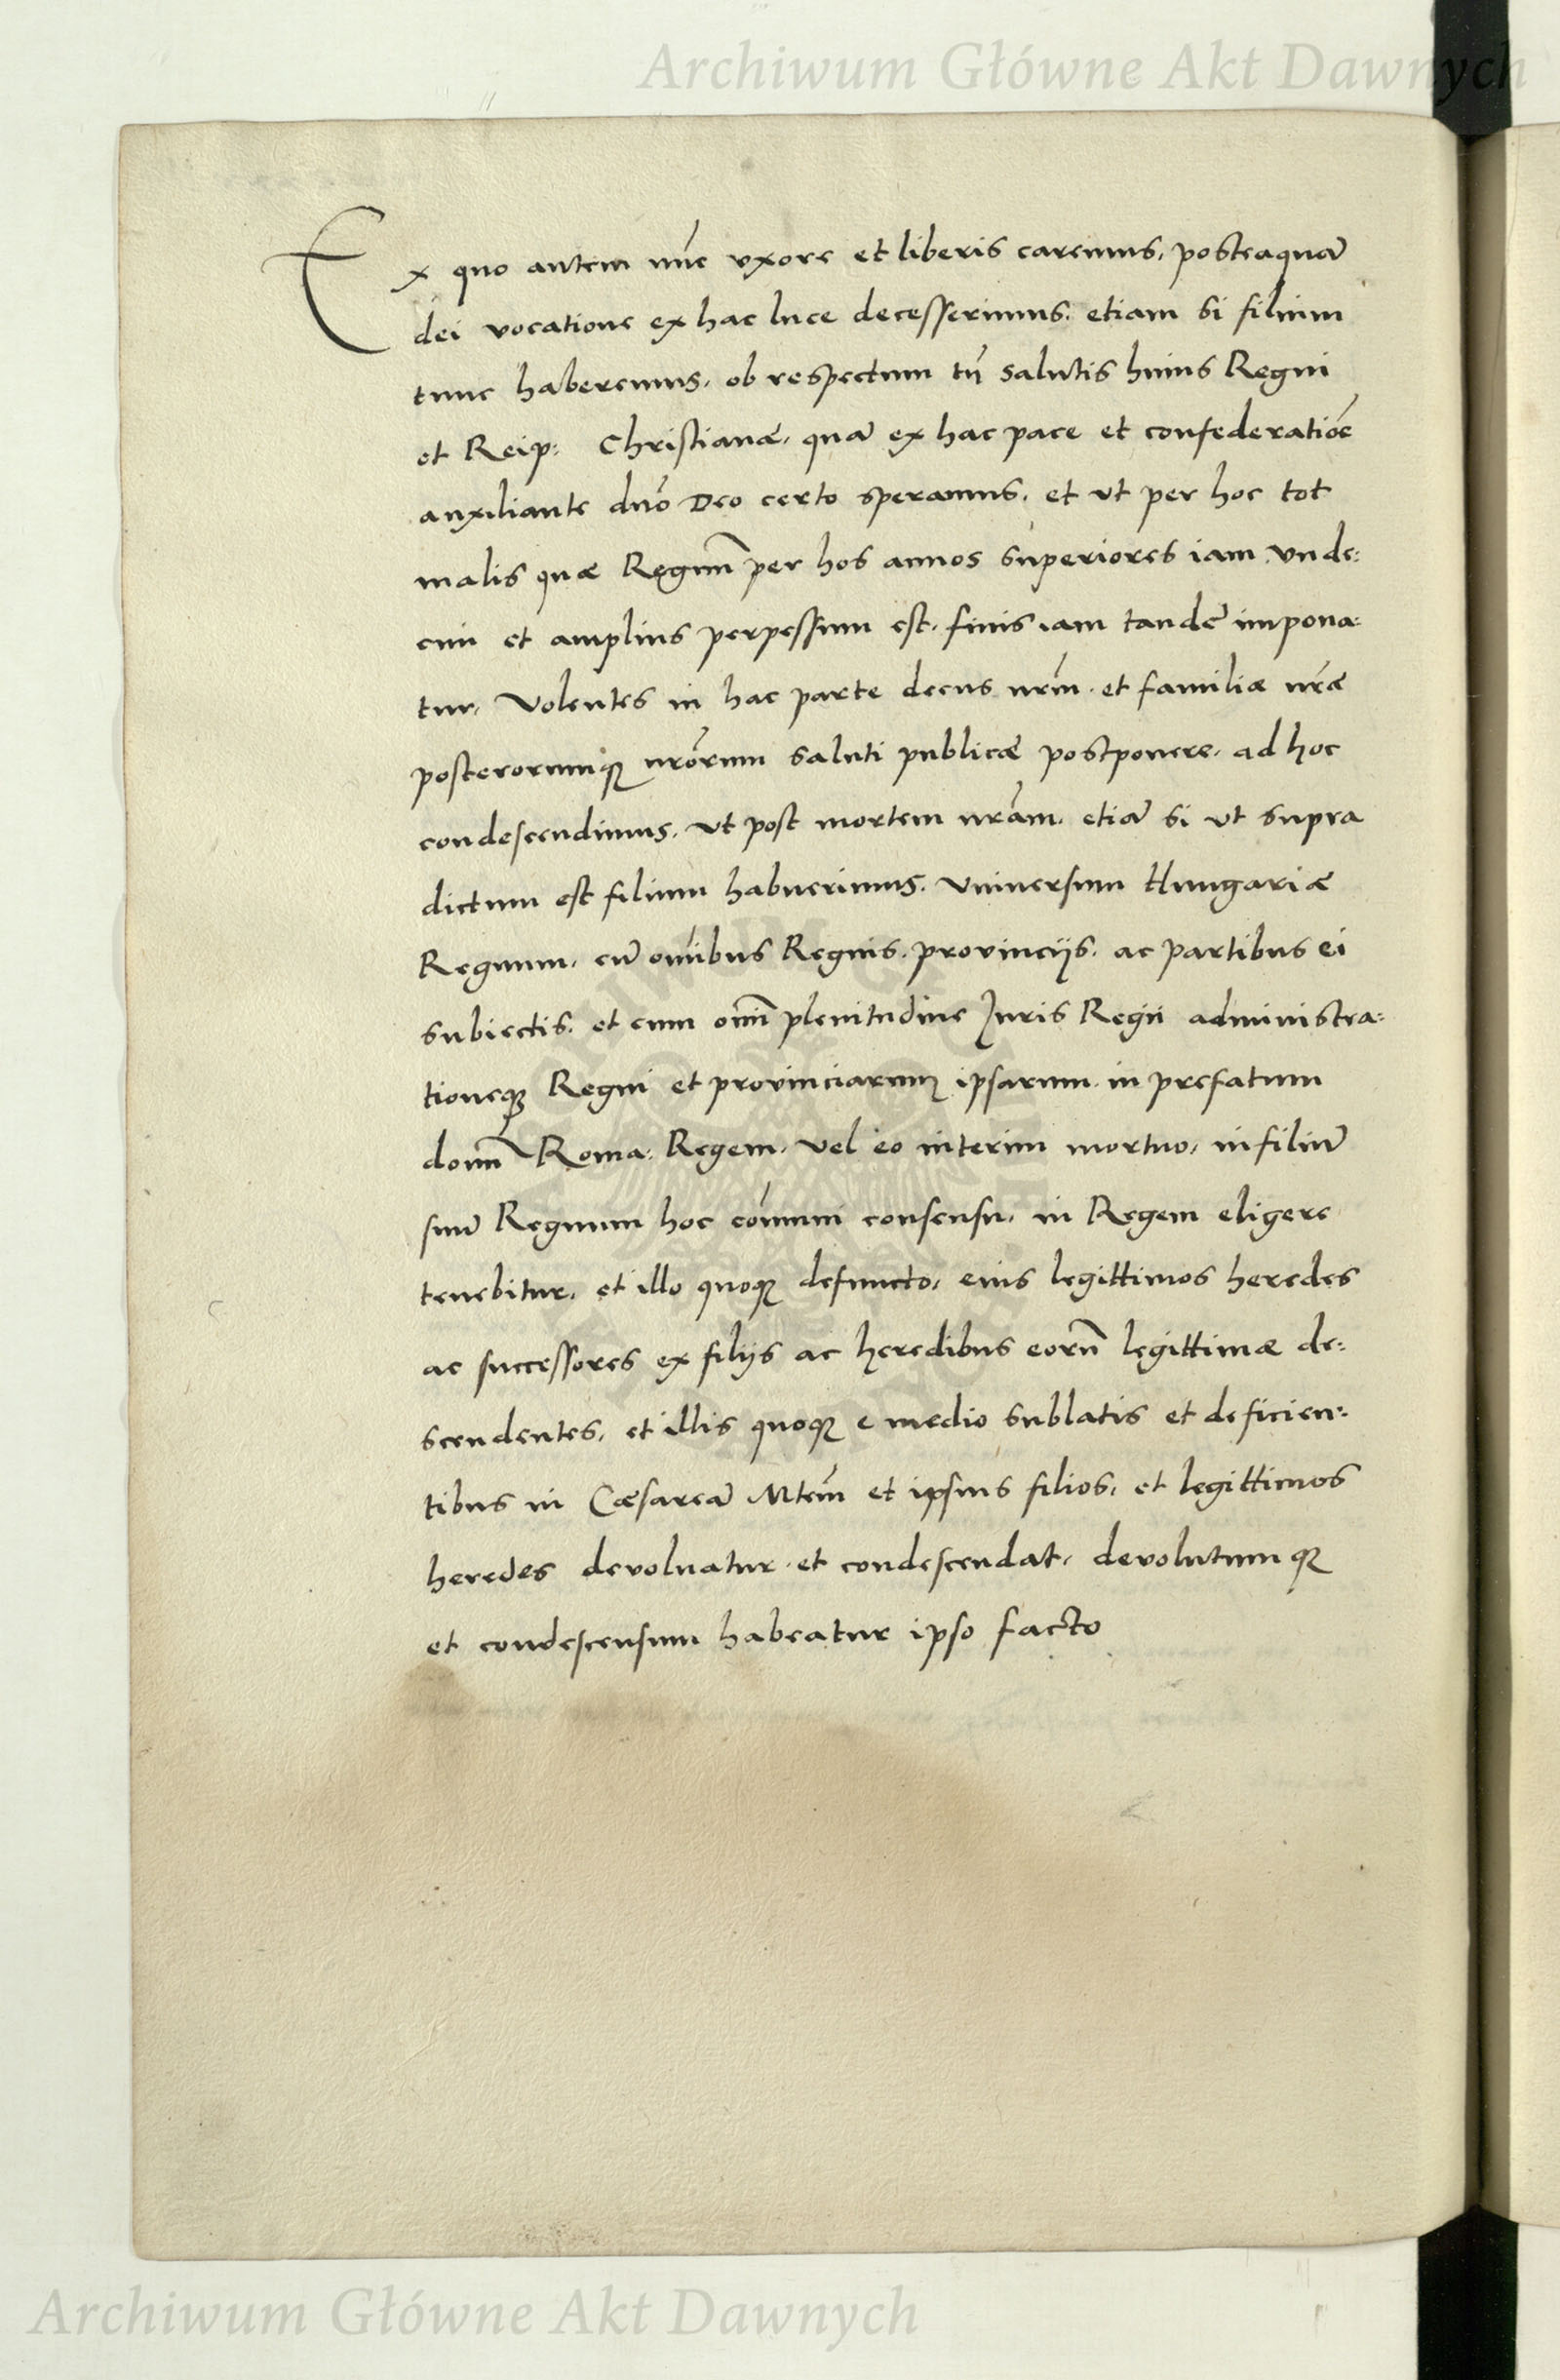 Archiwum Główne Akt Dawnych
Ex quo autem nūc vxore et liberis caremus, posteaquā
dei vocatione ex hac luce decesserimus, etiam si filium
tunc haberemus, ob respectum tn̄ salutis huius Regni
et Reip: Christianæ, quā ex hac pace et confederatiōe
auxiliante dn̄o Deo certo speramus, et vt per hoc tot
malis quæ Regnūm per hos annos superiores iam vnde:
cim et amplius perpessum est, finis iam tandē impona:
tur, Volentes in hac parte decus nr̄m et familiæ nr̄æ
posterorumq; nr̄orum saluti publicæ postponere, ad hoc
condescendimus, vt post mortem nr̄am, etiā si vt supra
dictum est filium habuerimus, Vniuersum Hungariæ
Regnum, cū om̄ibus Regnis, provincijs, ac partibus ei
subiectis, et cum om̄i plenitudine Juris Regij administra:
tioneq; Regni et provinciarum ipsarum, in prefatum
domn̄ Roma: Regem, vel eo interim mortuo, in filiū
suū Regnum hoc com̄uni consensu, in Regem eligere
tenebitur, et illo quoq; defuncto, eius legittimos heredes
ac successores ex filijs ac heredibus eorūm legittimæ de:
scendentes, et illis quoq; e medio sublatis et deficien:
tibus in Cæsareā Mtem̄ et ipsius filios, et legittimos
heredes devoluatur et condescendat, devolutumq;
et condescensum habeatur ipso facto
Archiwum Główne Akt Dawnych